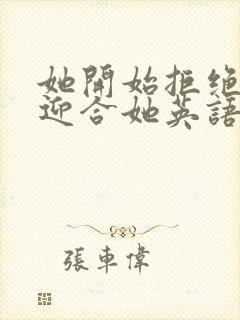 她開始拒絕
迎合她英語
張車偉